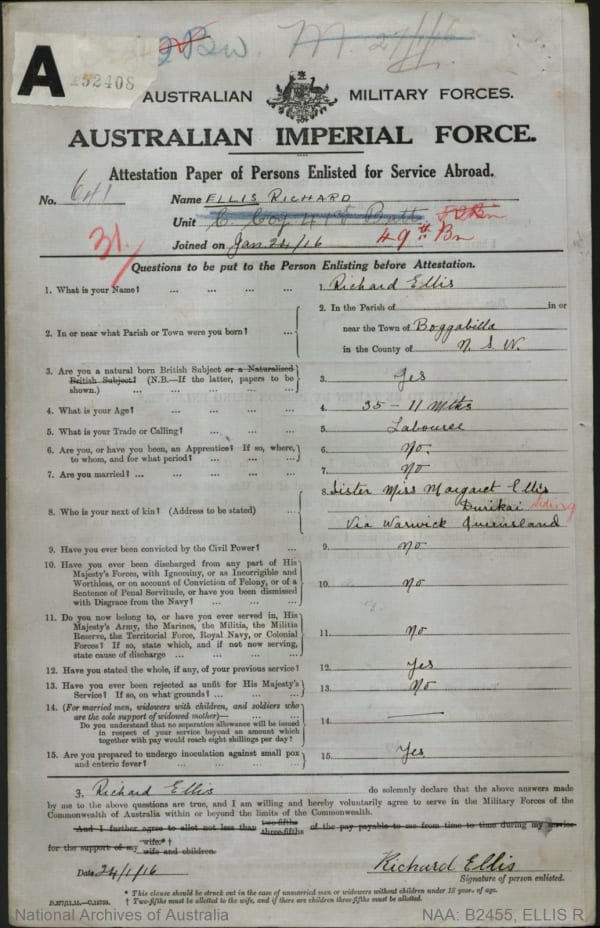 A 152408
M. 27/1/16
AUSTRALIAN MILITARY FORCES.
AUSTRALIAN IMPERIAL FORCE.
Attestation Paper of Persons Enlisted for Service Abroad.
No. 641 Name ELLIS RICHARD
Unit C Coy 41st Batt
Joined on Jan 24/16 49th Bn
31.
Questions to be put to the Person Enlisting before Attestation.
1. What is your Name? ... ... ... ... 1. Richard Ellis
2. In or near what Parish or Town were you born? ... 2. In the Parish of in or
near the Town of Boggabilla
in the County of N. S. W.
3. Are you a natural born British Subject or a Naturalised
British Subject? (N.B.—If the latter, papers to be
shown.) ... ... ... ... ... 3. Yes
4. What is your Age? ... ... ... ... 4. 35 - 11 Mths
5. What is your Trade or Calling? ... ... ... 5. Labourer
6. Are you, or have you been, an Apprentice? If so, where,
to whom, and for what period? ... ... ... 6. No.
7. Are you married? ... ... ... ... ... 7. No
8. Who is your next of kin? (Address to be stated) ... 8. Sister Miss Margaret Ellis
Durikai Siding
Via Warwick Queensland
9. Have you ever been convicted by the Civil Power? ... 9. no
10. Have you ever been discharged from any part of His
Majesty's Forces, with Ignominy, or as Incorrigible and
Worthless, or on account of Conviction of Felony, or of a
Sentence of Penal Servitude, or have you been dismissed
with Disgrace from the Navy? ... ... ... 10. no
11. Do you now belong to, or have you ever served in, His
Majesty's Army, the Marines, the Militia, the Militia
Reserve, the Territorial Force, Royal Navy, or Colonial
Forces? If so, state which, and if not now serving,
state cause of discharge ... ... ... ... 11. no
12. Have you stated the whole, if any, of your previous service? 12. Yes
13. Have you ever been rejected as unfit for His Majesty's
Service? If so, on what grounds? ... ... ... 13. No
14. (For married men, widowers with children, and soldiers who
are the sole support of widowed mother)—
Do you understand that no separation allowance will be issued
in respect of your service beyond an amount which
together with pay would reach eight shillings per day? 14. —
15. Are you prepared to undergo inoculation against small pox
and enteric fever? ... ... ... ... 15. Yes
I, Richard Ellis do solemnly declare that the above answers made
by me to the above questions are true, and I am willing and hereby voluntarily agree to serve in the Military Forces of the
Commonwealth of Australia within or beyond the limits of the Commonwealth.
And I further agree to allot not less than two-fifths three-fifths of the pay payable to me from time to time during my service
for the support of my wife.* † wife and children.
Date 24/1/16 Richard Ellis
Signature of person enlisted.
* This clause should be struck out in the case of unmarried men or widowers without children under 18 years of age.
† Two-fifths must be allotted to the wife, and if there are children three-fifths must be allotted.
National Archives of Australia NAA: B2455, ELLIS R